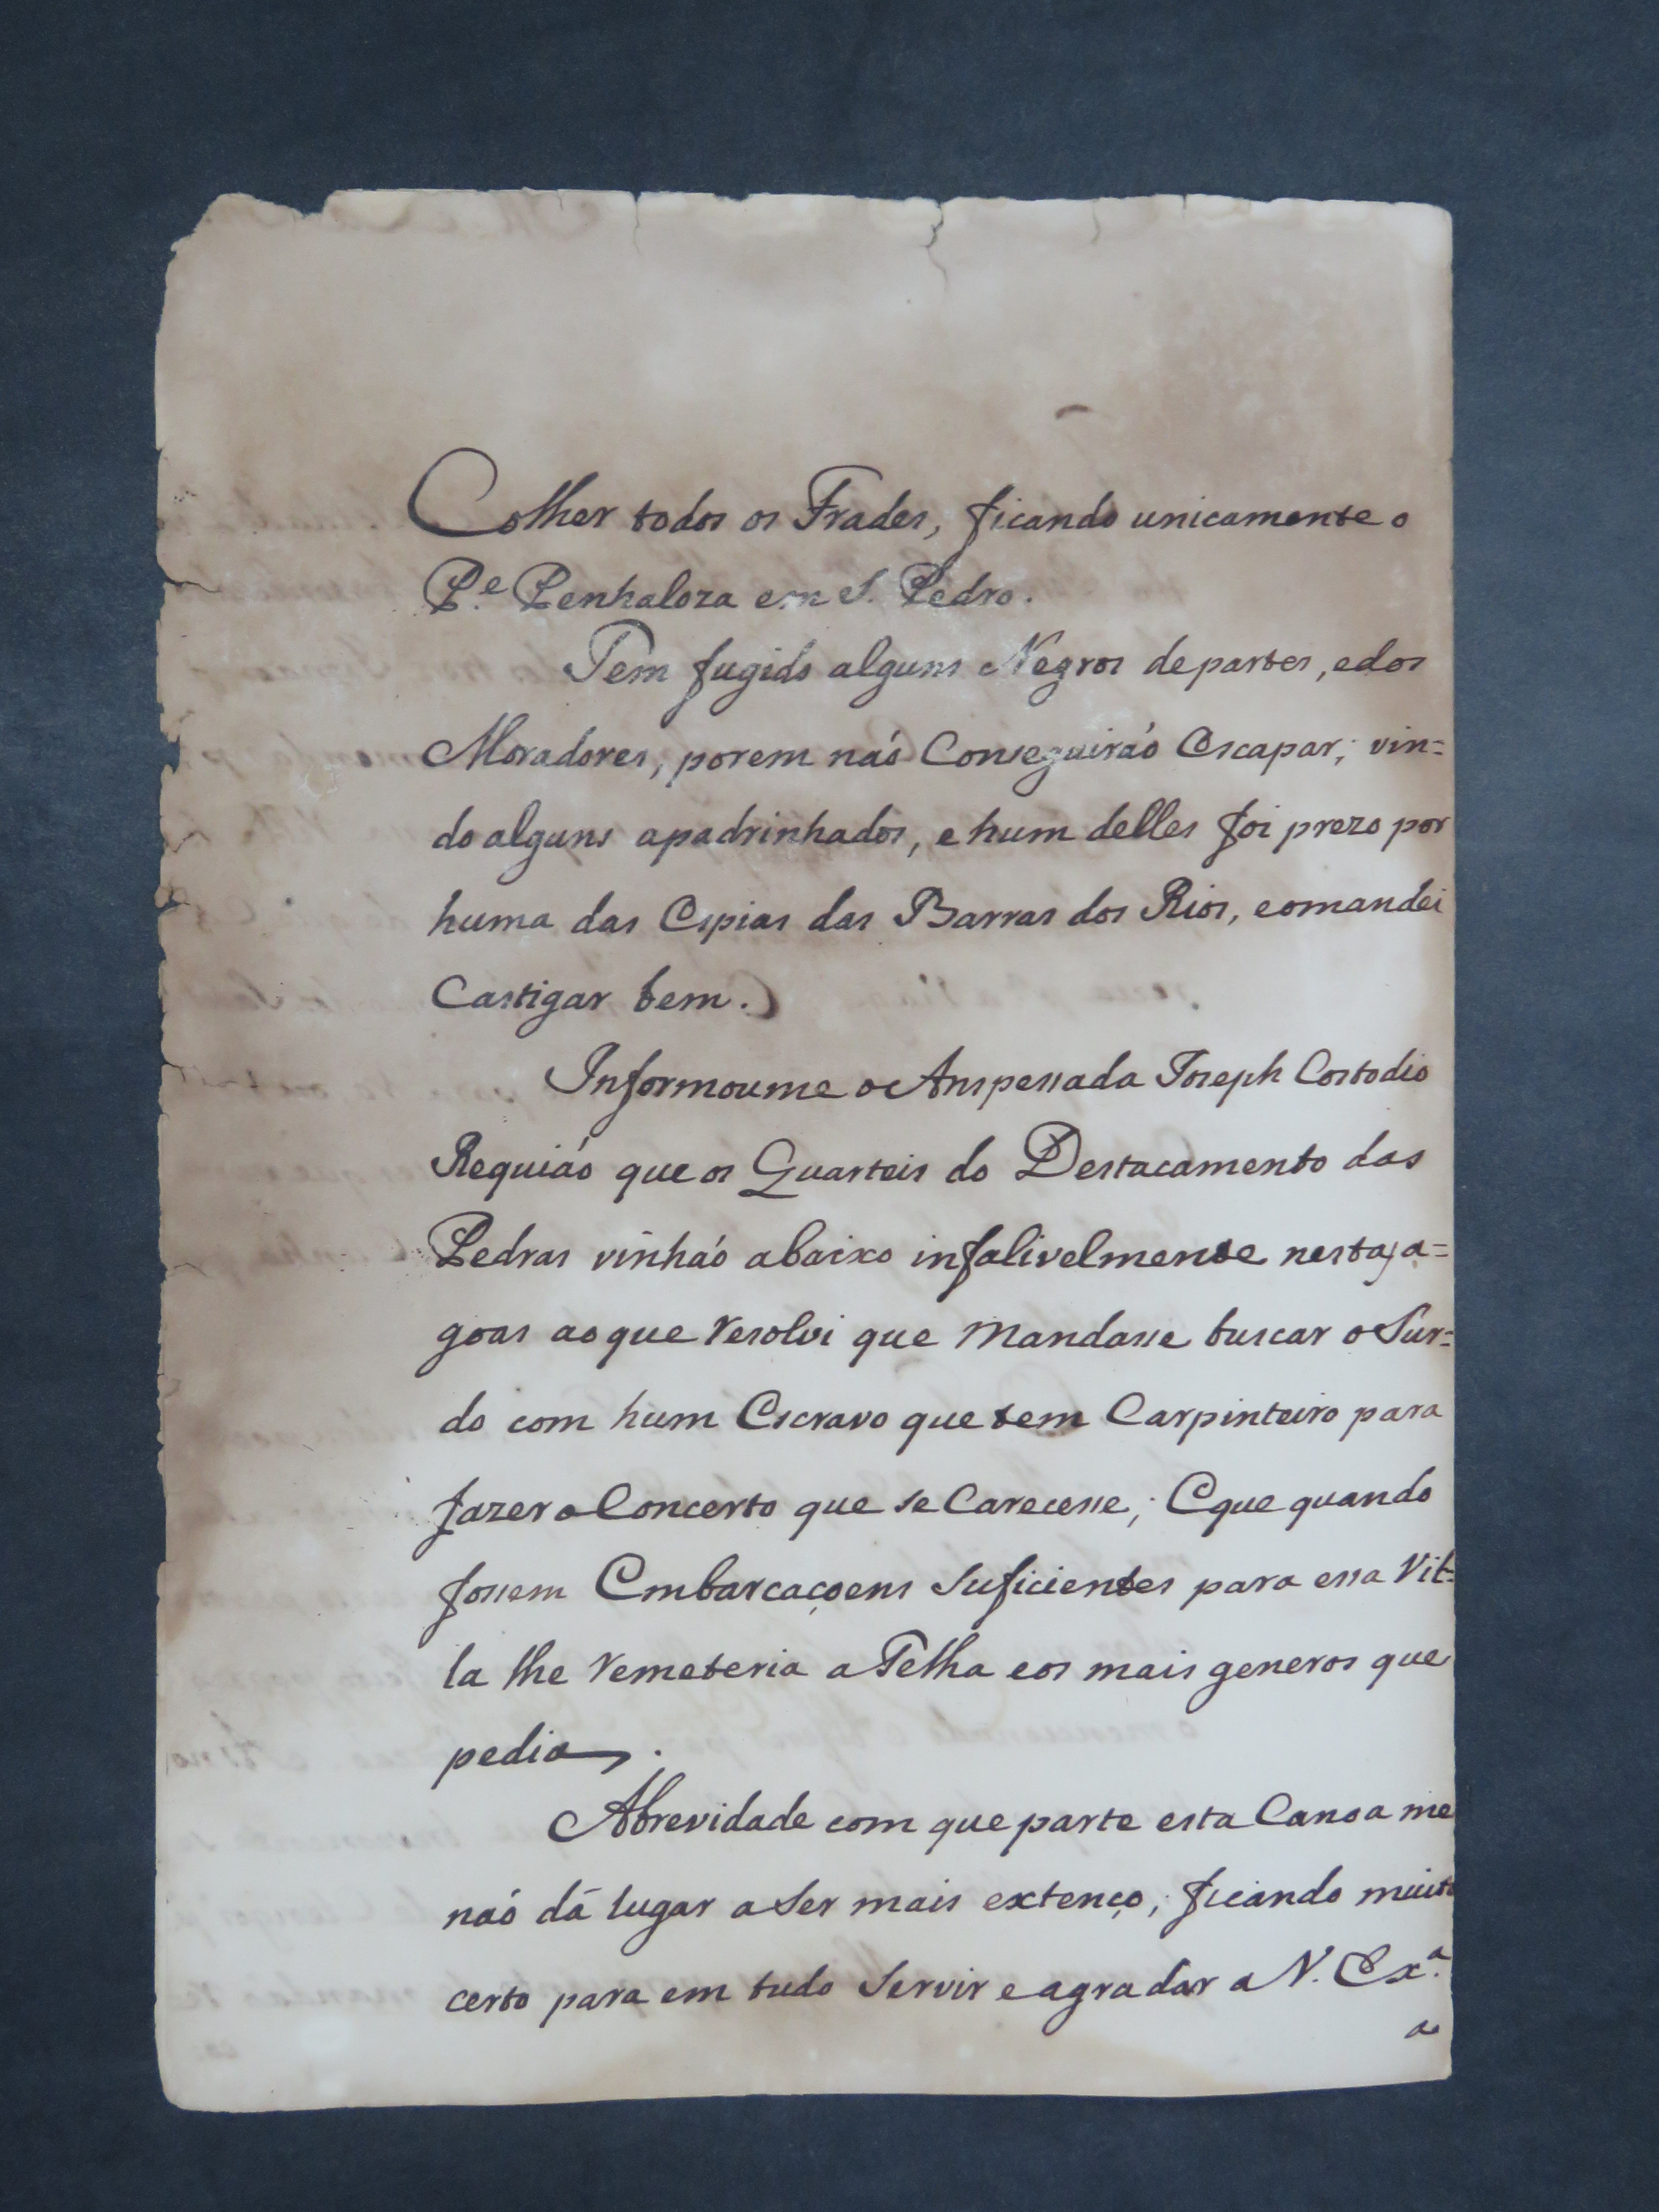 Colher todos os Frades, ficando unicamente o
P.e Penhaloza em S. Pedro.
Tem fugido alguns Negros departes, edos
Moradores, porem naó Conseguiraó Escapar; vin=
do alguns apadrinhados, e hum delles foi prezo por
huma das Espias das Barras dos Rios, eomandei
Castigar bem.
Informoume o Anspessada Joseph Costodio
Requiáo que os Quarteis do Destacamento das
Pedras vinhaó abaixo infalivelmente nestas a=
goas aoque resolvi que Mandasse buscar o Sur=
do com hum Escravo que tem Carpinteiro para
fazer o Concerto que se Carecesse; Eque quando
fossem Embarcaçoens Suficientes para essa Vil=
la lhe remeteria a Telha eos mais generos que
pedia.
Abrevidade com que parte esta Canoa me
naó dá lugar a Ser mais extenço; ficando muito
certo para em tudo Servir e agradar a V. Ex.a
a